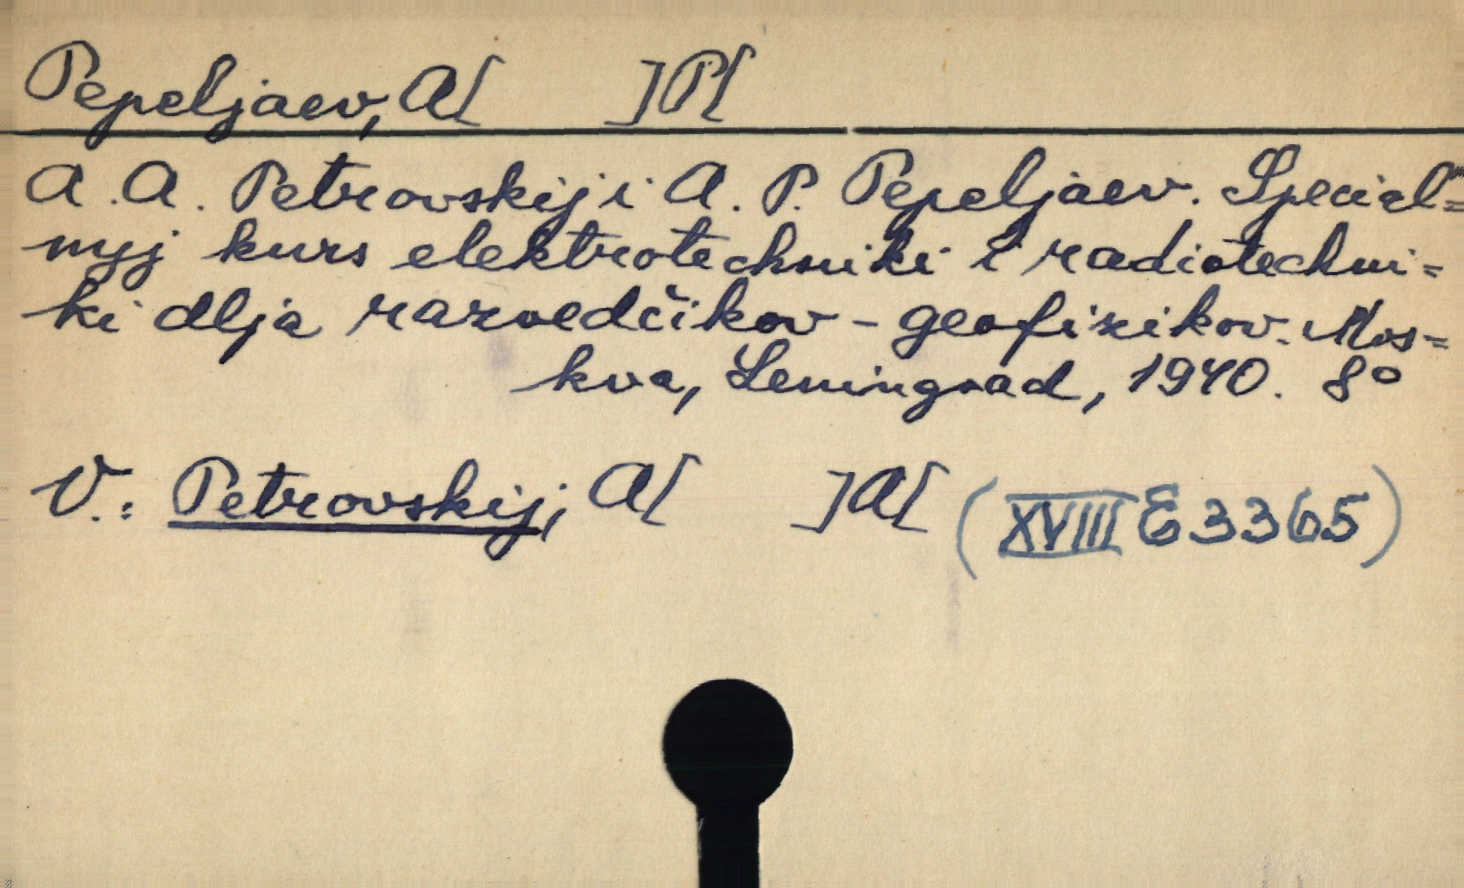 Pepeljaev, A[ ]P[
A. A. Petrovskij i A. P. Pepeljaev. Special'=
nyj kurs elektrotechniki i radiotechni=
ki dlja razvedčikov - geofizikov. Mos=
kva, Leningrad, 1940. 8°
V.: Petrovskij, A[ ]A[ (XVIII E 3365)